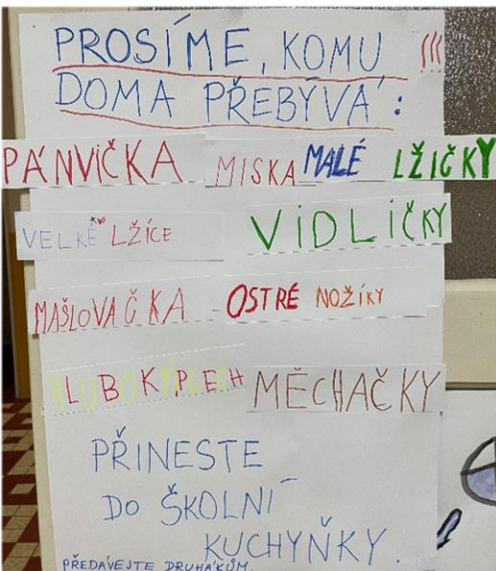 PROSÍME, KOMU !!!
DOMA PŘEBÝVÁ:
PÁNVIČKA MISKA MALÉ LŽIČKY
VELKÉ LŽÍCE VIDLIČKY
MAŠLOVAČKA OSTRÉ NOŽÍKY
HLUBOKÝ PLECH MĚCHAČKY
PŘINESTE
DO ŠKOLNÍ
KUCHYŇKY.
PŘEDÁVEJTE DRUHÁKŮM.